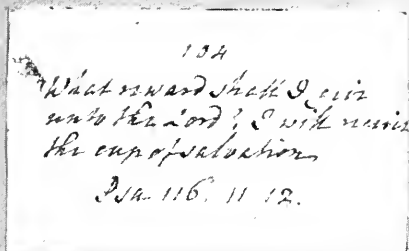 104
What reward shall I give
unto the Lord? I will receive
the cup of salvation
Psa. 116. 11 12.